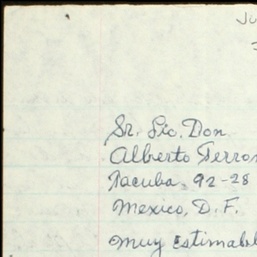 Ju
Sr. Lic. Don
Alberto Terron
Tacuba, 92-28
Mexico, D. F.
Muy Estimabl